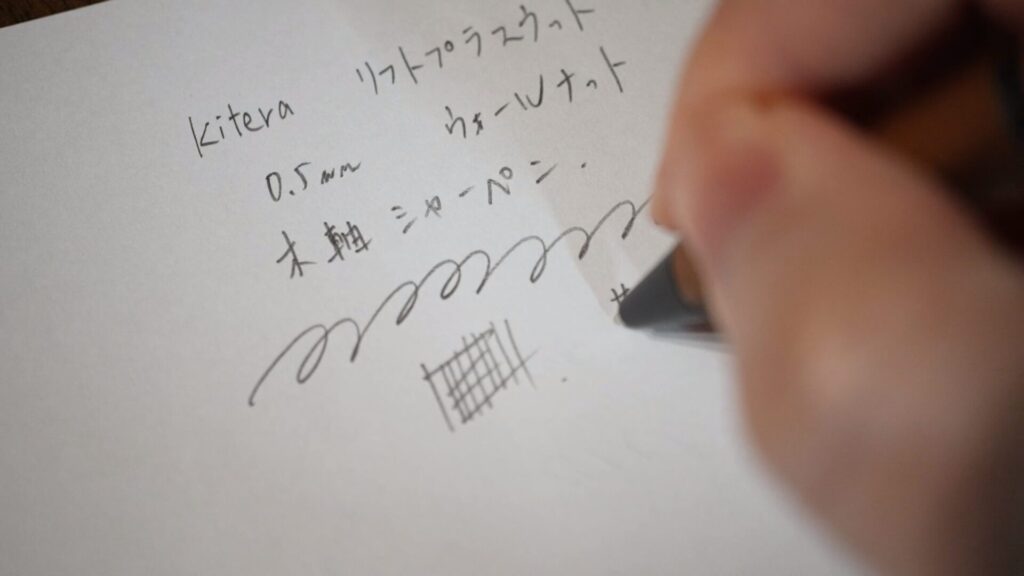 kitera
リフトプラスウット
ウォールナット
0.5mm
木軸 シャーペン.